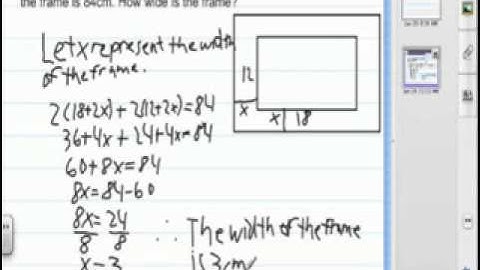 the frame is 84cm. How wide is the frame?
Let x represent the width
of the frame.
12
x
x
18
2(18+2x)+2(12+2x)=84
36+4x+24+4x=84
60+8x=84
8x=84-60
8x=24
8 8
∴ The width of the frame
x=3
is 3cm